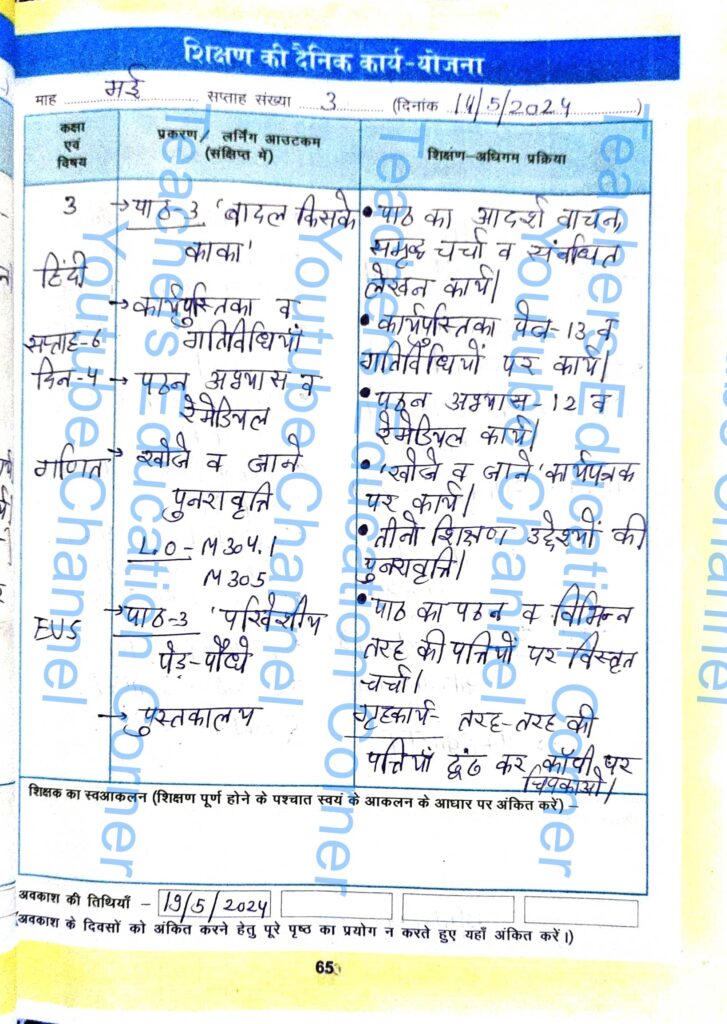 शिक्षण की दैनिक कार्य-योजना
माह मई सप्ताह संख्या 3 (दिनांक 14/5/2024)
कक्षा एवं विषय
प्रकरण / लर्निंग आउटकम (संक्षिप्त में)
शिक्षण-अधिगम प्रक्रिया
3
हिंदी
सप्ताह-6
दिन-4
→ पाठ-3 'बादल किसके
काका'
→ कार्यपुस्तिका व
गतिविधियाँ
→ पठन अभ्यास व
रेमेडियल
• पाठ का आदर्श वाचन,
समृद्ध चर्चा व संबंधित
लेखन कार्य।
• कार्यपुस्तिका पेज-13 व
गतिविधियों पर कार्य।
• पठन अभ्यास-12 व
रेमेडियल कार्य।
गणित
→ खोजे व जाने
पुनरावृत्ति
L.O - M304.1
M305
• 'खोजे व जाने' कार्यपत्रक
पर कार्य।
• तीनो शिक्षण उद्देश्यों की
पुनरावृत्ति।
EVS
→ पाठ-3 'परिवेशीय
पेड़-पौधे
→ पुस्तकालय
• पाठ का पठन व विभिन्न
तरह की पत्तियों पर विस्तृत
चर्चा।
गृहकार्य- तरह-तरह की
पत्तियाँ ढूंढ कर कॉपी पर
चिपकाओ।
शिक्षक का स्वआकलन (शिक्षण पूर्ण होने के पश्चात स्वयं के आकलन के आधार पर अंकित करें) -
अवकाश की तिथियाँ - 19/5/2024
(अवकाश के दिवसों को अंकित करने हेतु पूरे पृष्ठ का प्रयोग न करते हुए यहाँ अंकित करें।)
65
Teachers Education Corner
Youtube Channel
Teachers Education Corner
Youtube Channel
Teachers Education Corner
Youtube Channel